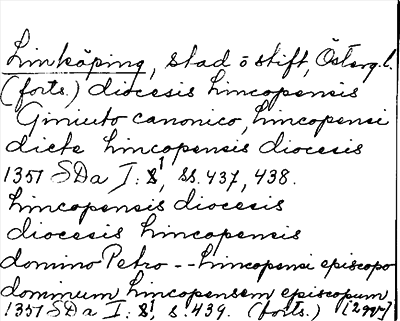 Linköping, stad o stift, Österg.l.
(forts.) diocesis lincopensis
Giniuto canonico, lincopensi
dicte lincopensis diocesis
1351 SDa I: 8¹, ss. 437, 438.
lincopensis diocesis
diocesis lincopensis
domino Petro -- lincopensi episcopo
dominum lincopensem episcopum
1351 SDa I: 8¹ s. 439. (forts.)